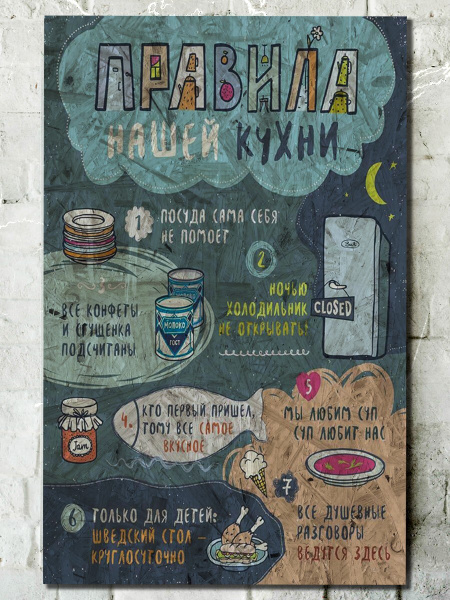 ПРАВИЛА
НАШЕЙ КУХНИ
1 ПОСУДА САМА СЕБЯ
НЕ ПОМОЕТ
2
НОЧЬЮ
ХОЛОДИЛЬНИК
НЕ ОТКРЫВАТЬ!
CLOSED
3
ВСЕ КОНФЕТЫ
И СГУЩЕНКА
ПОДСЧИТАНЫ
МОЛОКО
ГОСТ
4. КТО ПЕРВЫЙ ПРИШЕЛ,
ТОМУ ВСЕ САМОЕ
ВКУСНОЕ
Jam
5
МЫ ЛЮБИМ СУП,
СУП ЛЮБИТ НАС
6 ТОЛЬКО ДЛЯ ДЕТЕЙ:
ШВЕДСКИЙ СТОЛ –
КРУГЛОСУТОЧНО
7
ВСЕ ДУШЕВНЫЕ
РАЗГОВОРЫ
ВЕДУТСЯ ЗДЕСЬ